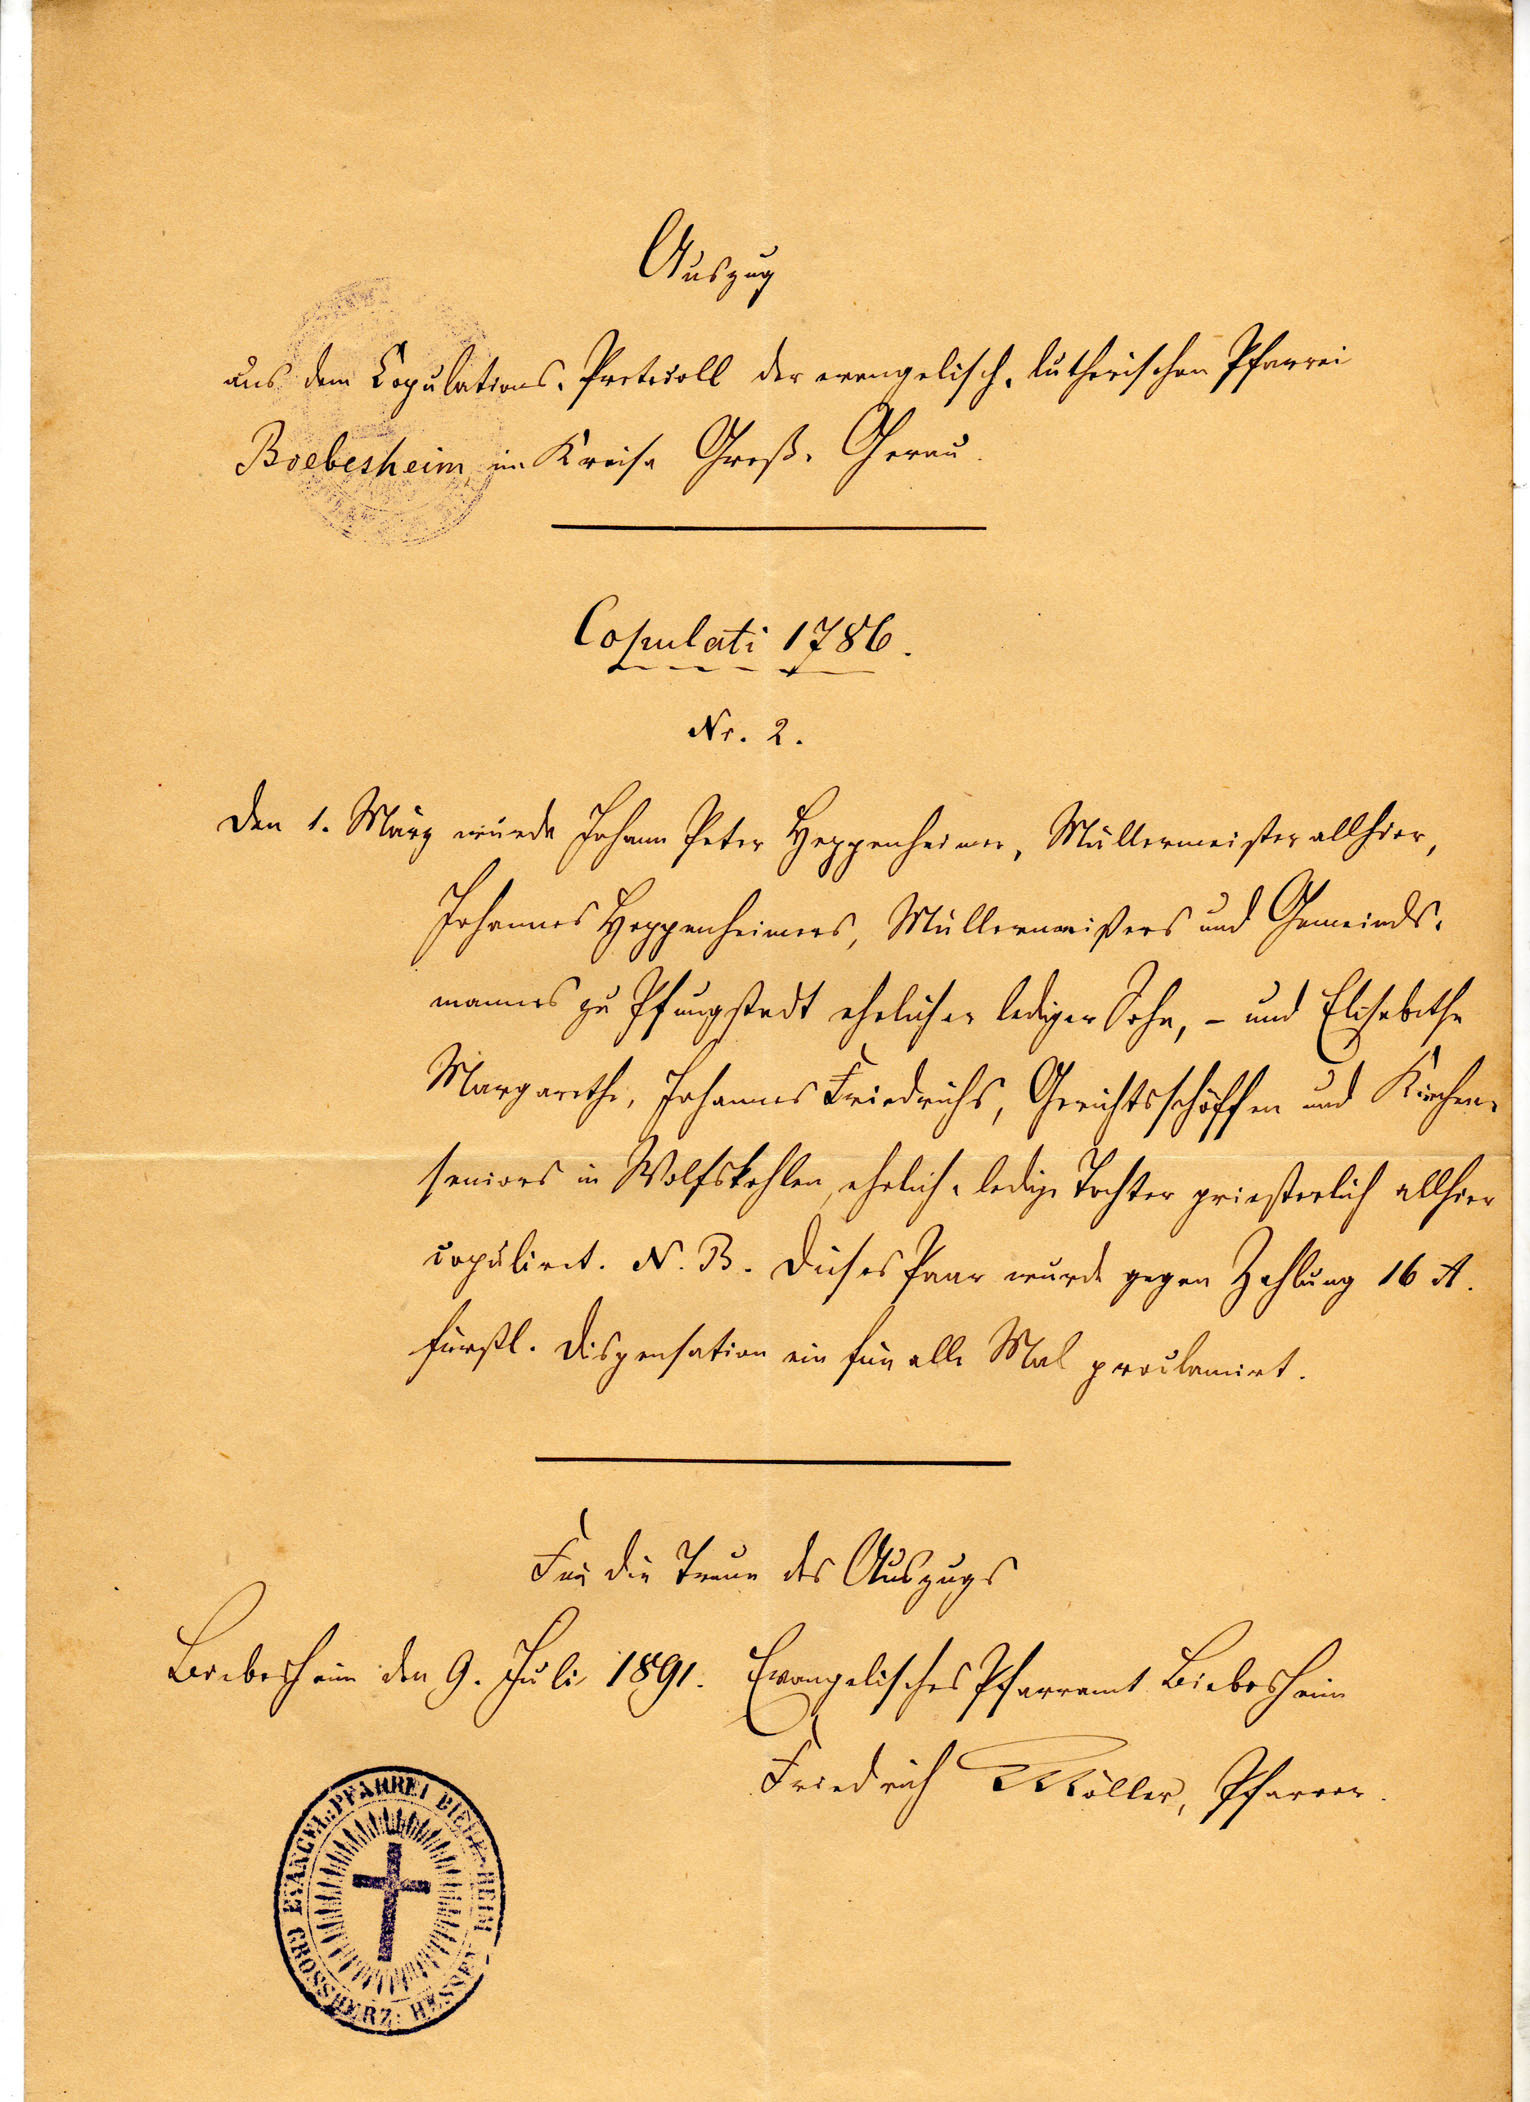 Auszug
aus dem Copulations-Protocoll der evangelisch-lutherischen Pfarrei
Biebesheim im Kreise Groß-Gerau.
Copulati 1786.
Nr. 2.
Den 1. März wurde Johann Peter Heppenheimer, Müllermeister allhier,
Johannes Heppenheimers, Müllermeisters und Gemeinds-
mannes zu Pfungstadt ehelicher lediger Sohn, – und Elisabethe
Margarethe, Johannes Friedrichs, Gerichtsschöffen und Kirchen-
seniors in Wolfskehlen, ehelich-ledige Tochter priesterlich allhier
copulirt. N. B. Dieses Paar wurde gegen Zahlung 16
fürstl. Dispensation ein für alle Mal proclamirt.
Für die Treue des Auszugs
Biebesheim den 9. Juli 1891. Evangelisches Pfarramt Biebesheim
Friedrich Möller, Pfarrer.
EVANGEL: PFARREI BIEBESHEIM
GROSSHERZ: HESSEN